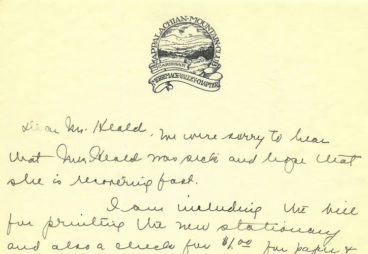 APPALACHIAN·MOUNTAIN·CLUB
MERRIMACK·VALLEY·CHAPTER
Dear Mr. Heald, We were sorry to hear
that Mrs Heald was sick and hope that
she is recovering fast.
I am including the bill
for printing the new stationary
and also a check for $1.00 for paper &